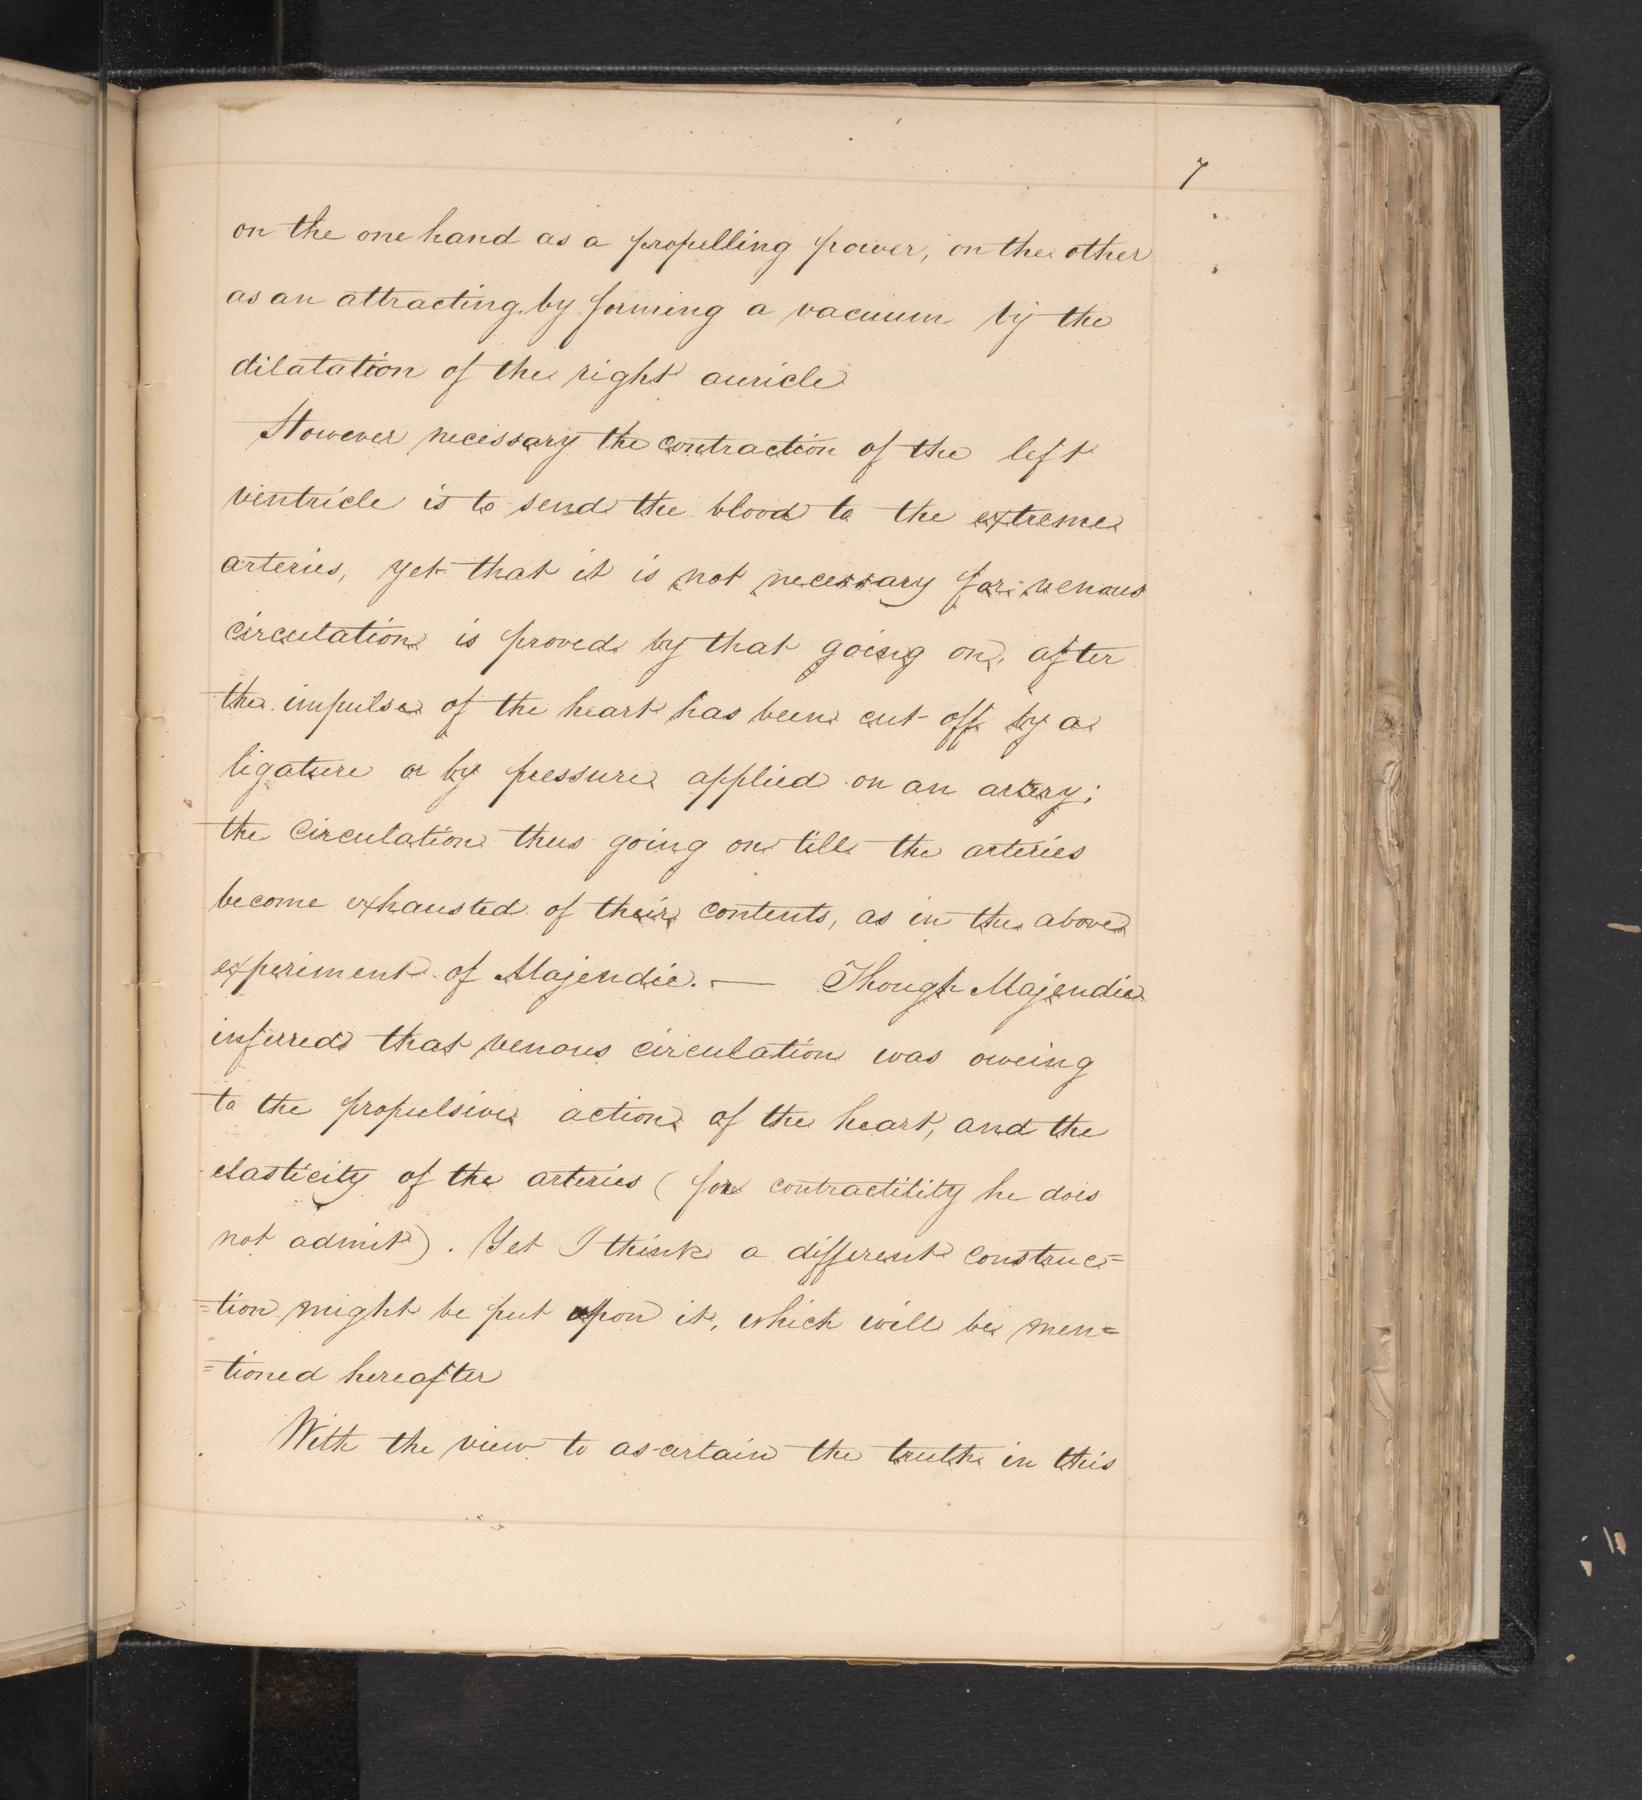 7
on the one hand as a propelling power, on the other
as an attracting by forming a vacuum by the
dilatation of the right auricle
However necessary the contraction of the left
ventricle is to send the blood to the extreme
arteries, yet that it is not necessary for venous
circulation is proved by that going on, after
the impulse of the heart has been cut off by a
ligature or by pressure applied on an artery;
the circulation thus going on till the arteries
become exhausted of their contents, as in the above
experiment of Majendie. — Though Majendie
inferred that venous circulation was oweing
to the propulsive action of the heart, and the
elasticity of the arteries (for contractility he does
not admit). Yet I think a different construc=
=tion might be put upon it, which will be men=
=tioned hereafter
With the view to ascertain the truth in this